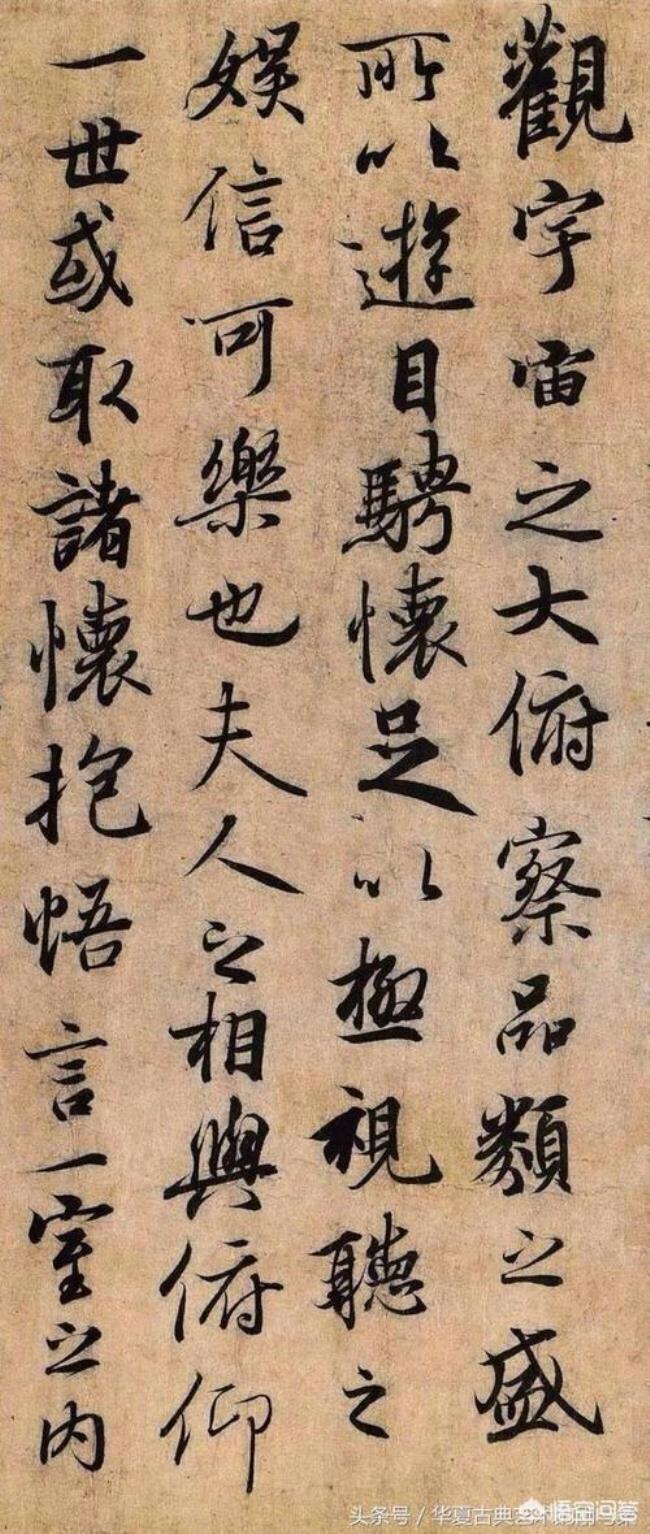 觀宇宙之大俯察品類之盛
所以遊目騁懷足以極視聽之
娛信可樂也夫人之相與俯仰
一世或取諸懷抱悟言一室之內
头条号/华夏古典艺术
悟空问答